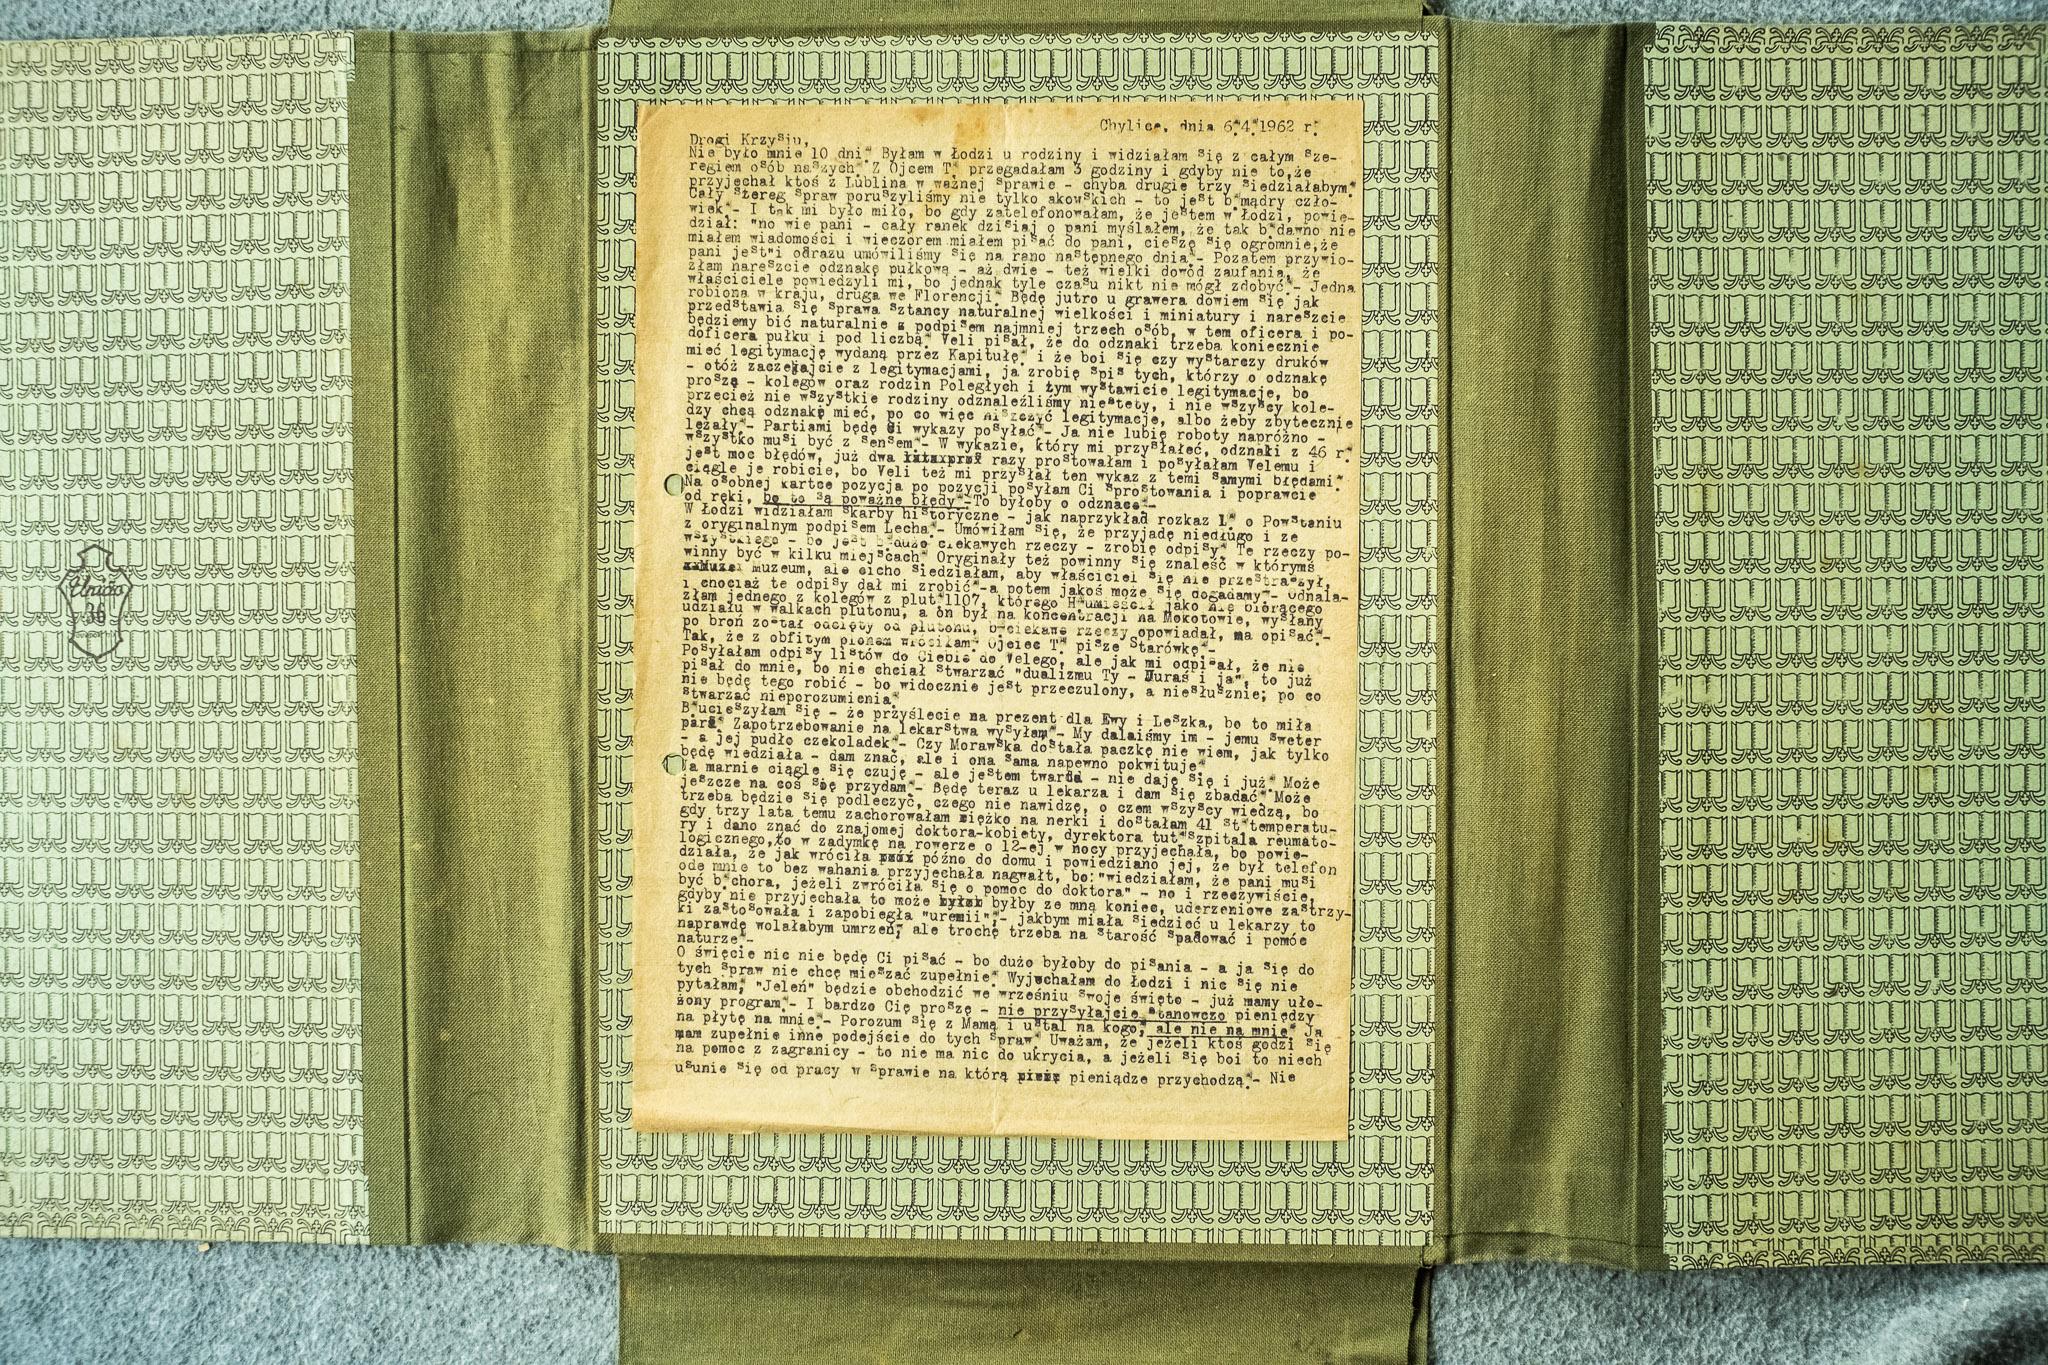 Chylice, dnia 6.4.1962 r.
Drogi Krzysiu,
Nie było mnie 10 dni. Byłam w Łodzi u rodziny i widziałam się z całym sze-
regiem osób naszych. Z Ojcem T. przegadałam 3 godziny i gdyby nie to, że
przyjechał ktoś z Lublina w ważnej sprawie - chyba drugie trzy siedziałabym.
Cały szereg spraw poruszyliśmy nie tylko akowskich - to jest b.mądry czło-
wiek.- I tak mi było miło, bo gdy zatelefonowałam, że jestem w Łodzi, powie-
dział: "no wie pani - cały ranek dzisiaj o pani myślałem, że tak b.dawno nie
miałem wiadomości i wieczorem miałem pisać do pani, cieszę się ogromnie,że
pani jest"i odrazu umówiliśmy się na rano następnego dnia.- Pozatem przywio-
złam nareszcie odznakę pułkową - aż dwie - też wielki dowód zaufania, że
właściciele powiedzyli mi, bo jednak tyle czasu nikt nie mógł zdobyć.- Jedna
robiona w kraju, druga we Florencji. Będę jutro u grawera dowiem się jak
przedstawia się sprawa sztancy naturalnej wielkości i miniatury i nareszcie
będziemy bić naturalnie z podpisem najmniej trzech osób, w tem oficera i po-
doficera pułku i pod liczbą. Veli pisał, że do odznaki trzeba koniecznie
mieć legitymację wydaną przez Kapitułę. i że boi się czy wystarczy druków
- otóż zaczekajcie z legitymacjami, ja zrobię spis tych, którzy o odznakę
proszą - kolegów oraz rodzin Poległych i tym wystawicie legitymacje, bo
przecież nie wszystkie rodziny odznaleźliśmy niestety, i nie wszyscy kole-
dzy chcą odznakę mieć, po co więc niszczyć legitymacje, albo żeby zbytecznie
leżały.- Partiami będę Ci wykazy posyłać.- Ja nie lubię roboty napróżno -
wszystko musi być z sensem.- W wykazie, który mi przysłałeś, odznaki z 46 r.
jest moc błędów, już dwa razy prostowałam i posyłałam Velemu i
ciągle je robicie, bo Veli też mi przysłał ten wykaz z temi samymi błędami.
Na osobnej kartce pozycja po pozycji posyłam Ci sprostowania i poprawcie
od ręki, bo to są poważne błędy.-To byłoby o odznace.-
W Łodzi widziałam skarby historyczne - jak naprzykład rozkaz L. o Powstaniu
z oryginalnym podpisem Lecha.- Umówiłam się, że przyjadę niedługo i ze
wszystkiego - bo jest b.dużo ciekawych rzeczy - zrobię odpisy. Te rzeczy po-
winny być w kilku miejscach. Oryginały też powinny się znaleść w którymś
muzeum, ale cicho siedziałam, aby właściciel się nie przestraszył,
i chociaż te odpisy dał mi zrobić.-a potem jakoś może się dogadamy.- Odnala-
złam jednego z kolegów z plut.1107, którego H.umieścił jako nie biorącego
udziału w walkach plutonu, a on był na koncentracji na Mokotowie, wysłany
po broń został odcięty od plutonu, b.ciekawe rzeczy opowiadał, ma opisać.-
Tak, że z obfitym plonem wróciłam. Ojciec T. pisze Starówkę.-
Posyłałam odpisy listów do Ciebie do Velego, ale jak mi odpisał, że nie
pisał do mnie, bo nie chciał stwarzać "dualizmu Ty - Muraś i ja", to już
nie będę tego robić - bo widocznie jest przeczulony, a niesłusznie; po co
stwarzać nieporozumienia.
B.ucieszyłam się - że przyślecie na prezent dla Ewy i Leszka, bo to miła
para. Zapotrzebowanie na lekarstwa wysyłam.- My daliśmy im - jemu sweter
- a jej pudło czekoladek.- Czy Morawska dostała paczkę nie wiem, jak tylko
będę wiedziała - dam znać, ale i ona sama napewno pokwituje.
Ja marnie ciągle się czuję - ale jestem twarda - nie daję się i już. Może
jeszcze na coś się przydam.- Będę teraz u lekarza i dam się zbadać. Może
trzeba będzie się podleczyć, czego nie nawidzę, o czem wszyscy wiedzą, bo
gdy trzy lata temu zachorowałam ciężko na nerki i dostałam 41 st.temperatu-
ry i dano znać do znajomej doktora-kobiety, dyrektora tut.szpitala reumato-
logicznego,to w zadymkę na rowerze o 12-ej w nocy przyjechała, bo powie-
działa, że jak wróciła późno do domu i powiedziano jej, że był telefon
ode mnie to bez wahania przyjechała nagwałt, bo:"wiedziałam, że pani musi
być b.chora, jeżeli zwróciła się o pomoc do doktora" - no i rzeczywiście,
gdyby nie przyjechała to może byłby ze mną koniec, uderzeniowe zastrzy-
ki zastosowała i zapobiegła "uremii";- jakbym miała siedzieć u lekarzy to
naprawdę wolałabym umrzeń, ale trochę trzeba na starość spasować i pomóc
naturze.-
O święcie nic nie będę Ci pisać - bo dużo byłoby do pisania - a ja się do
tych spraw nie chcę mieszać zupełnie. Wyjechałam do Łodzi i nic się nie
pytałam. "Jeleń" będzie obchodzić we wrześniu swoje święto - już mamy uło-
żony program.- I bardzo Cię proszę - nie przysyłajcie stanowczo pieniędzy
na płytę na mnie.- Porozum się z Mamą i ustal na kogo, ale nie na mnie. Ja
mam zupełnie inne podejście do tych spraw. Uważam, że jeżeli ktoś godzi się
na pomoc z zagranicy - to nie ma nic do ukrycia, a jeżeli się boi to niech
usunie się od pracy w sprawie na którą pieniądze przychodzą.- Nie
Unida
36